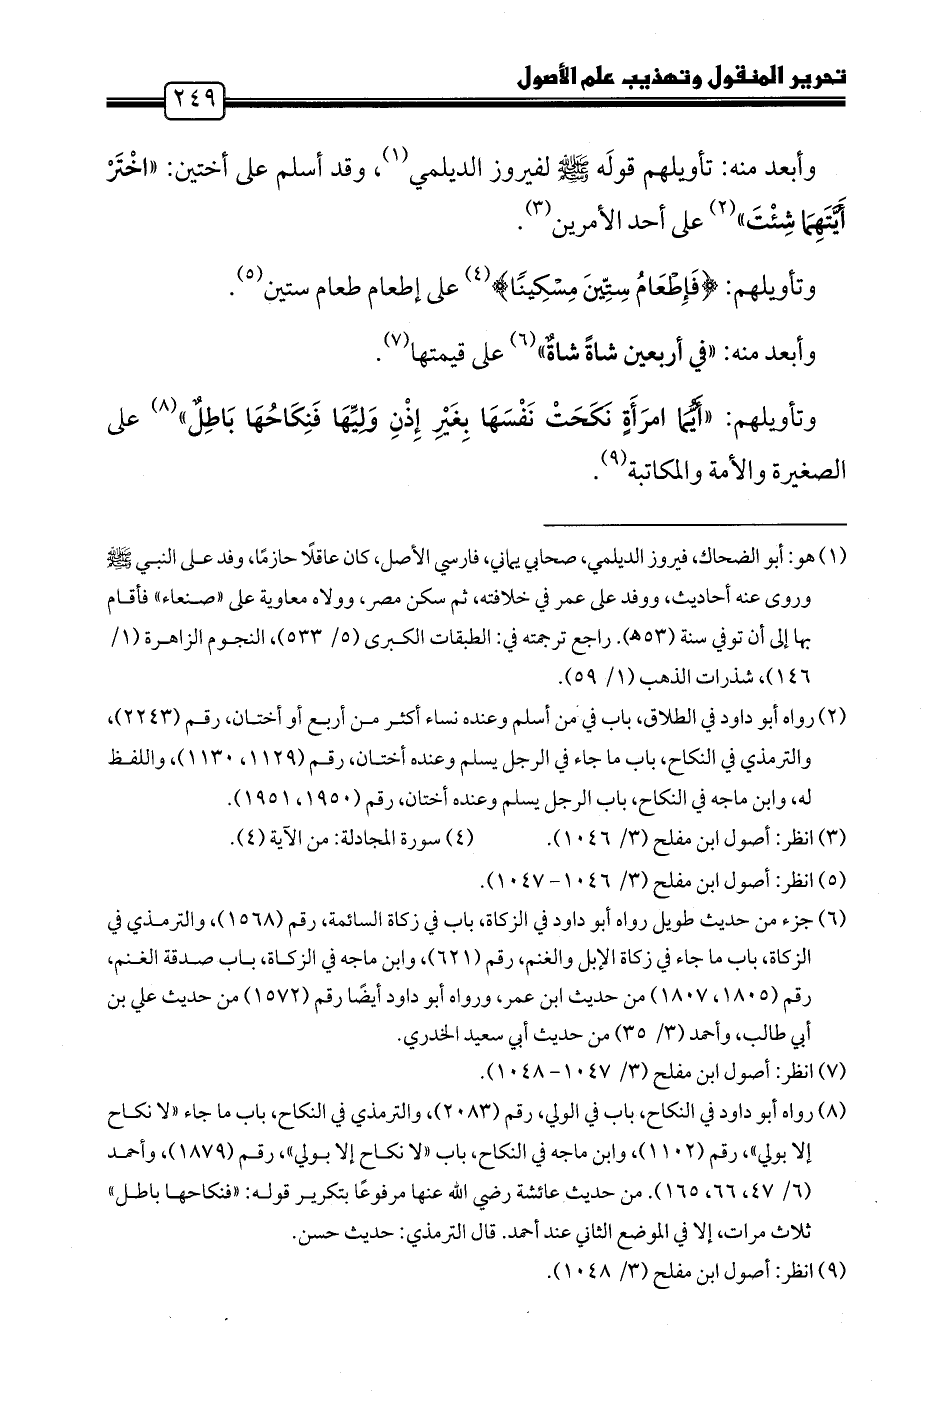 تحرير المنقول وتهذيب علم الأصول
٢٤٩
وأبعد منه: تأويلهم قولَه ﷺ لفيروز الديلمي(١)، وقد أسلم على أختين: «اخْتَرْ
أَيَّتَهِمَا شِئْتَ»(٢) على أحد الأمرين(٣).
وتأويلهم: ﴿فَإِطْعَامُ سِتِّينَ مِسْكِينًا﴾(٤) على إطعام طعام ستين(٥).
وأبعد منه: «في أربعين شاةً شاةٌ»(٦) على قيمتها(٧).
وتأويلهم: «أَيُّمَا امرَأَةٍ نَكَحَتْ نَفْسَهَا بِغَيْرِ إِذْنِ وَلِيِّهَا فَنِكَاحُهَا بَاطِلٌ»(٨) على
الصغيرة والأمة والمكاتبة(٩).
(١) هو: أبو الضحاك، فيروز الديلمي، صحابي يماني، فارسي الأصل، كان عاقلًا حازمًا، وفد على النبي ﷺ
وروى عنه أحاديث، ووفد على عمر في خلافته، ثم سكن مصر، وولاه معاوية على «صنعاء» فأقام
بها إلى أن توفي سنة (٥٣هـ). راجع ترجمته في: الطبقات الكبرى (٥/ ٥٣٣)، النجوم الزاهرة (١/
١٤٦)، شذرات الذهب (١/ ٥٩).
(٢) رواه أبو داود في الطلاق، باب في من أسلم وعنده نساء أكثر من أربع أو أختان، رقم (٢٢٤٣)،
والترمذي في النكاح، باب ما جاء في الرجل يسلم وعنده أختان، رقم (١١٢٩، ١١٣٠)، واللفظ
له، وابن ماجه في النكاح، باب الرجل يسلم وعنده أختان، رقم (١٩٥٠، ١٩٥١).
(٣) انظر: أصول ابن مفلح (٣/ ١٠٤٦). (٤) سورة المجادلة: من الآية (٤).
(٥) انظر: أصول ابن مفلح (٣/ ١٠٤٦-١٠٤٧).
(٦) جزء من حديث طويل رواه أبو داود في الزكاة، باب في زكاة السائمة، رقم (١٥٦٨)، والترمذي في
الزكاة، باب ما جاء في زكاة الإبل والغنم، رقم (٦٢١)، وابن ماجه في الزكاة، باب صدقة الغنم،
رقم (١٨٠٥، ١٨٠٧) من حديث ابن عمر، ورواه أبو داود أيضًا رقم (١٥٧٢) من حديث علي بن
أبي طالب، وأحمد (٣/ ٣٥) من حديث أبي سعيد الخدري.
(٧) انظر: أصول ابن مفلح (٣/ ١٠٤٧-١٠٤٨).
(٨) رواه أبو داود في النكاح، باب في الولي، رقم (٢٠٨٣)، والترمذي في النكاح، باب ما جاء «لا نكاح
إلا بولي»، رقم (١١٠٢)، وابن ماجه في النكاح، باب «لا نكاح إلا بولي»، رقم (١٨٧٩)، وأحمد
(٦/ ٤٧، ٦٦، ١٦٥). من حديث عائشة رضي الله عنها مرفوعًا بتكرير قوله: «فنكاحها باطل»
ثلاث مرات، إلا في الموضع الثاني عند أحمد. قال الترمذي: حديث حسن.
(٩) انظر: أصول ابن مفلح (٣/ ١٠٤٨).